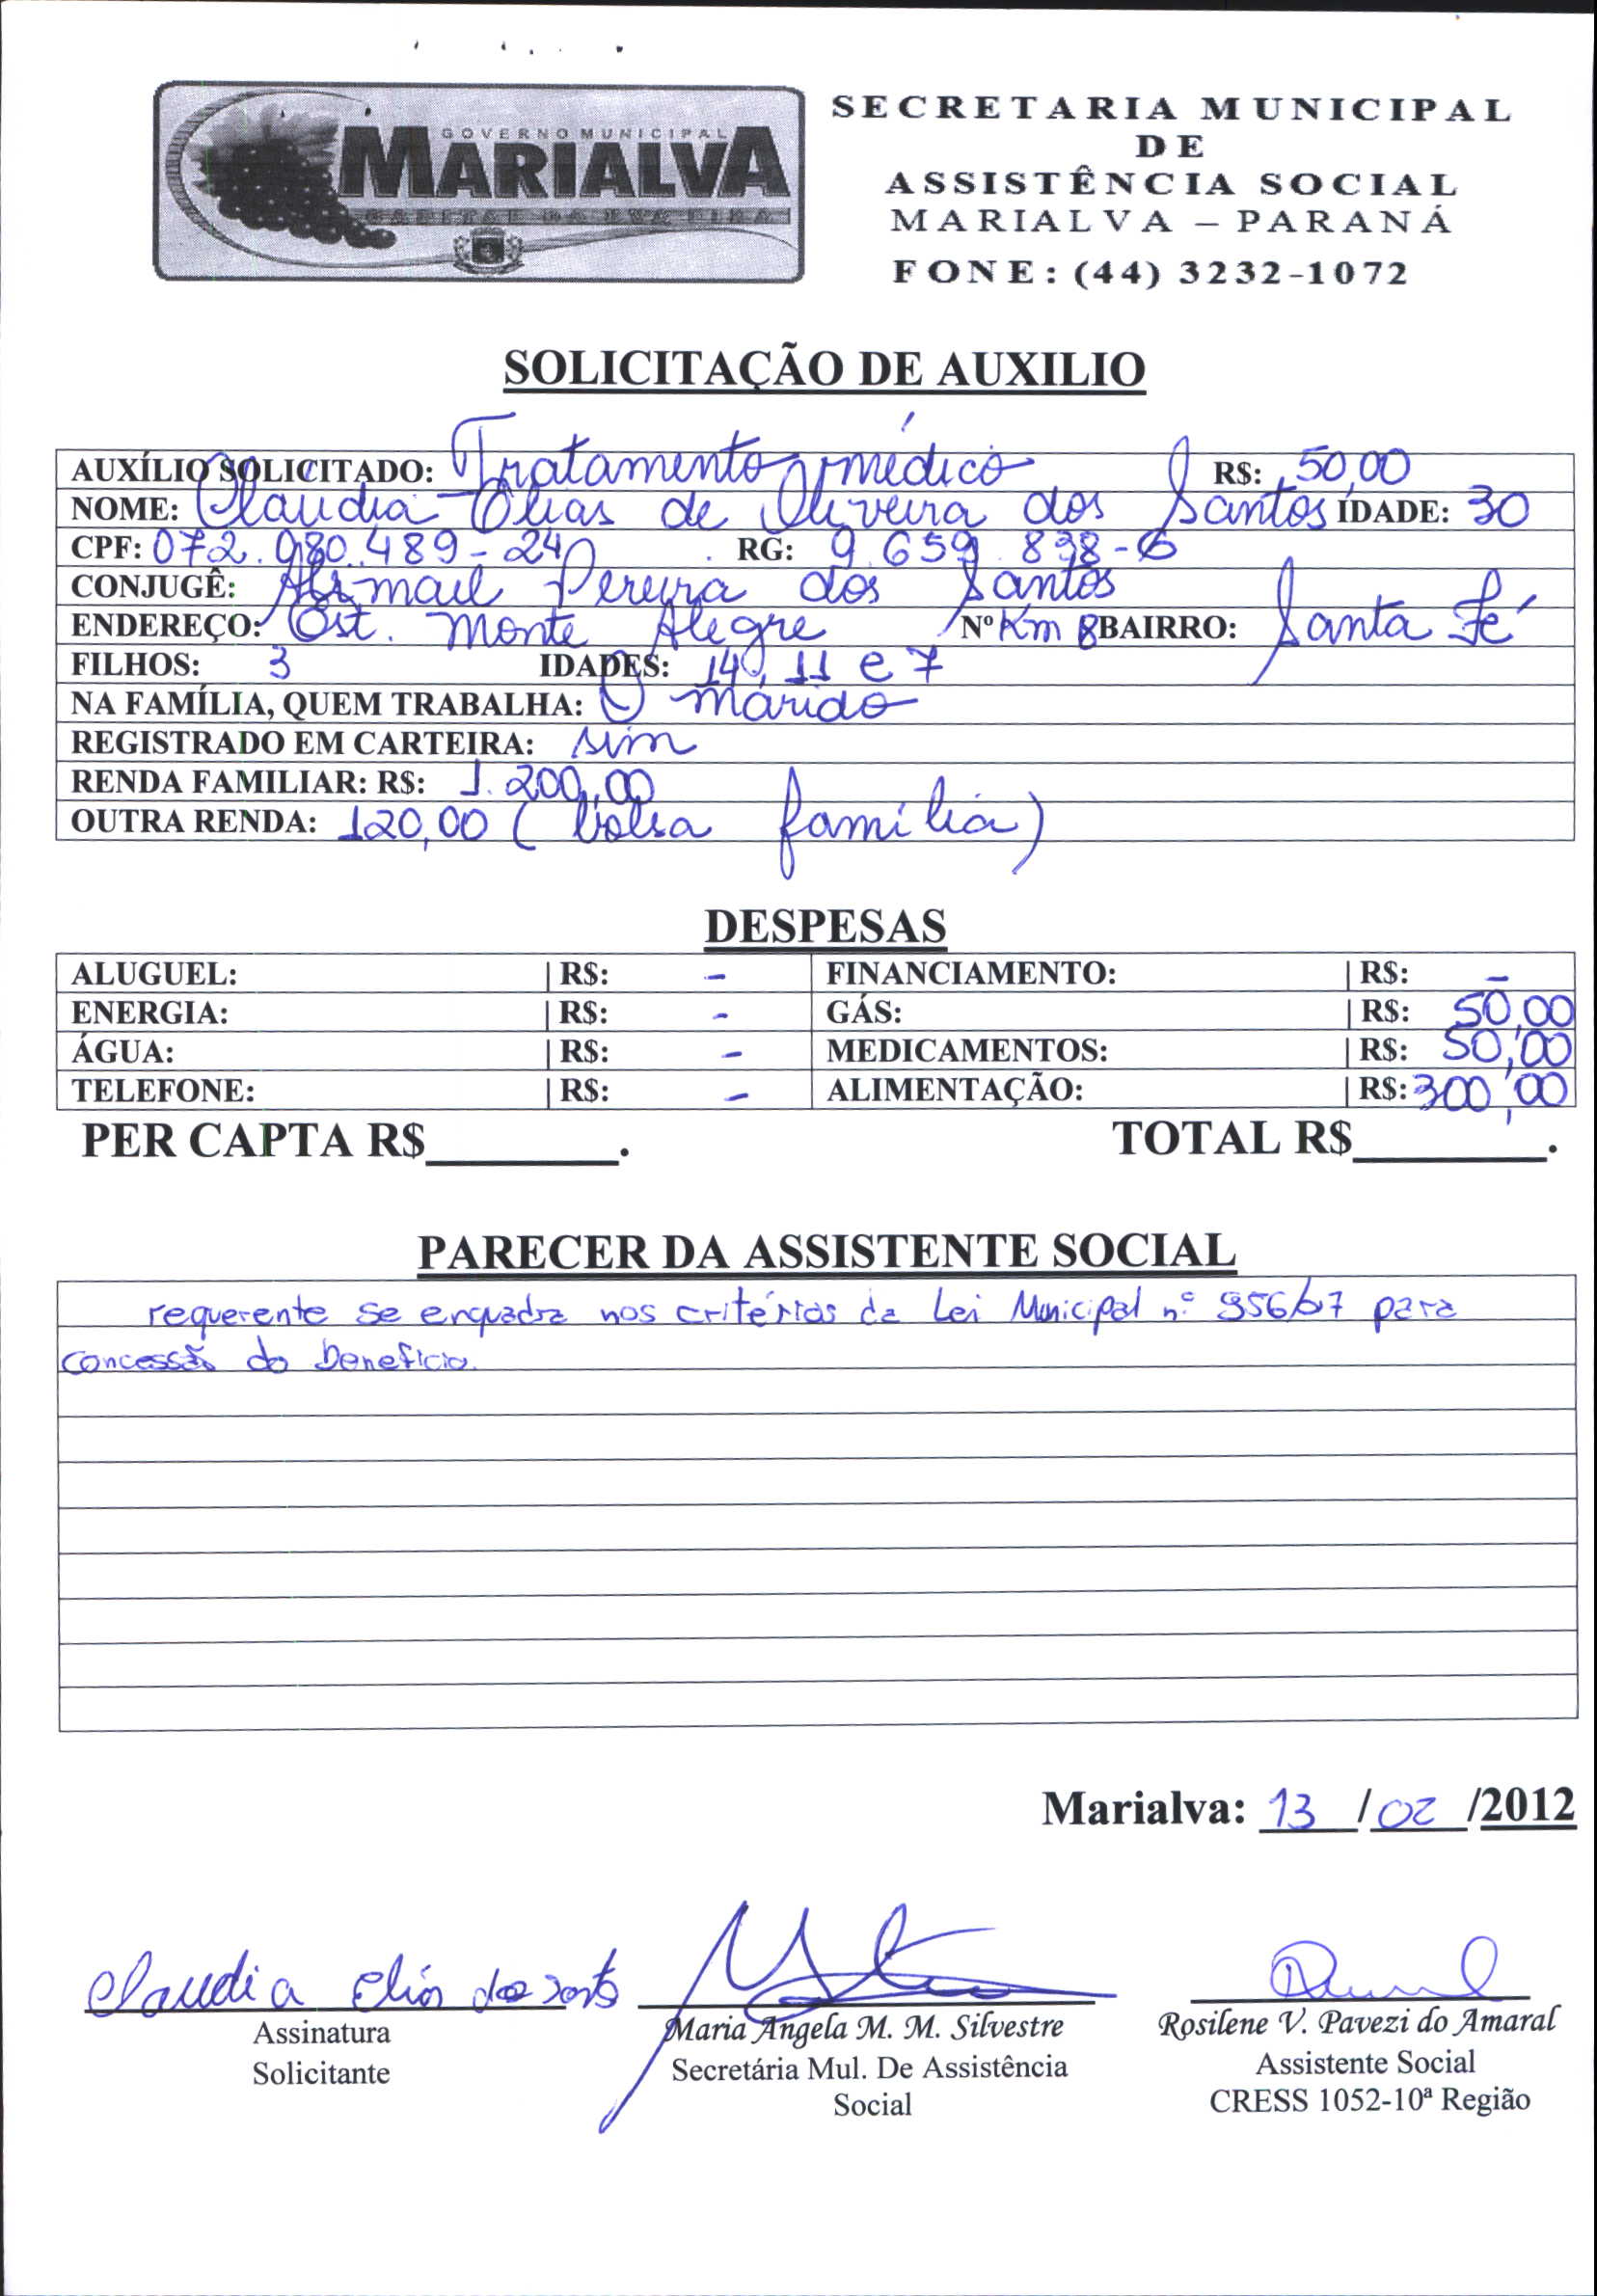 GOVERNO MUNICIPAL
MARIALVA
SECRETARIA MUNICIPAL
DE
ASSISTÊNCIA SOCIAL
MARIALVA – PARANÁ
FONE: (44) 3232-1072
SOLICITAÇÃO DE AUXILIO
AUXÍLIO SOLICITADO: Tratamento médico R$: 50,00
NOME: Claudia Elias de Oliveira dos Santos IDADE: 30
CPF: 072.980.489-24 RG: 9.659.838-6
CONJUGÊ: Pereira dos Santos
ENDEREÇO: Est. Monte Alegre Nº Km 8 BAIRRO: Santa Fé
FILHOS: 3 IDADES: 14, 11 e 7
NA FAMÍLIA, QUEM TRABALHA: O marido
REGISTRADO EM CARTEIRA: sim
RENDA FAMILIAR: R$: 1.200,00
OUTRA RENDA: 120,00 (bolsa família)
DESPESAS
ALUGUEL: | R$: - FINANCIAMENTO: | R$: -
ENERGIA: | R$: - GÁS: | R$: 50,00
ÁGUA: | R$: - MEDICAMENTOS: | R$: 50,00
TELEFONE: | R$: - ALIMENTAÇÃO: | R$: 300,00
PER CAPTA R$________. TOTAL R$________.
PARECER DA ASSISTENTE SOCIAL
requerente se enquadra nos critérios da Lei Municipal nº 956/07 para
concessão do benefício.
Marialva: 13 / 02 /2012
Claudia Elias dos Santos
Assinatura
Solicitante
Maria Angela M. M. Silvestre
Secretária Mul. De Assistência
Social
Rosilene V. Pavezi do Amaral
Assistente Social
CRESS 1052-10ª Região